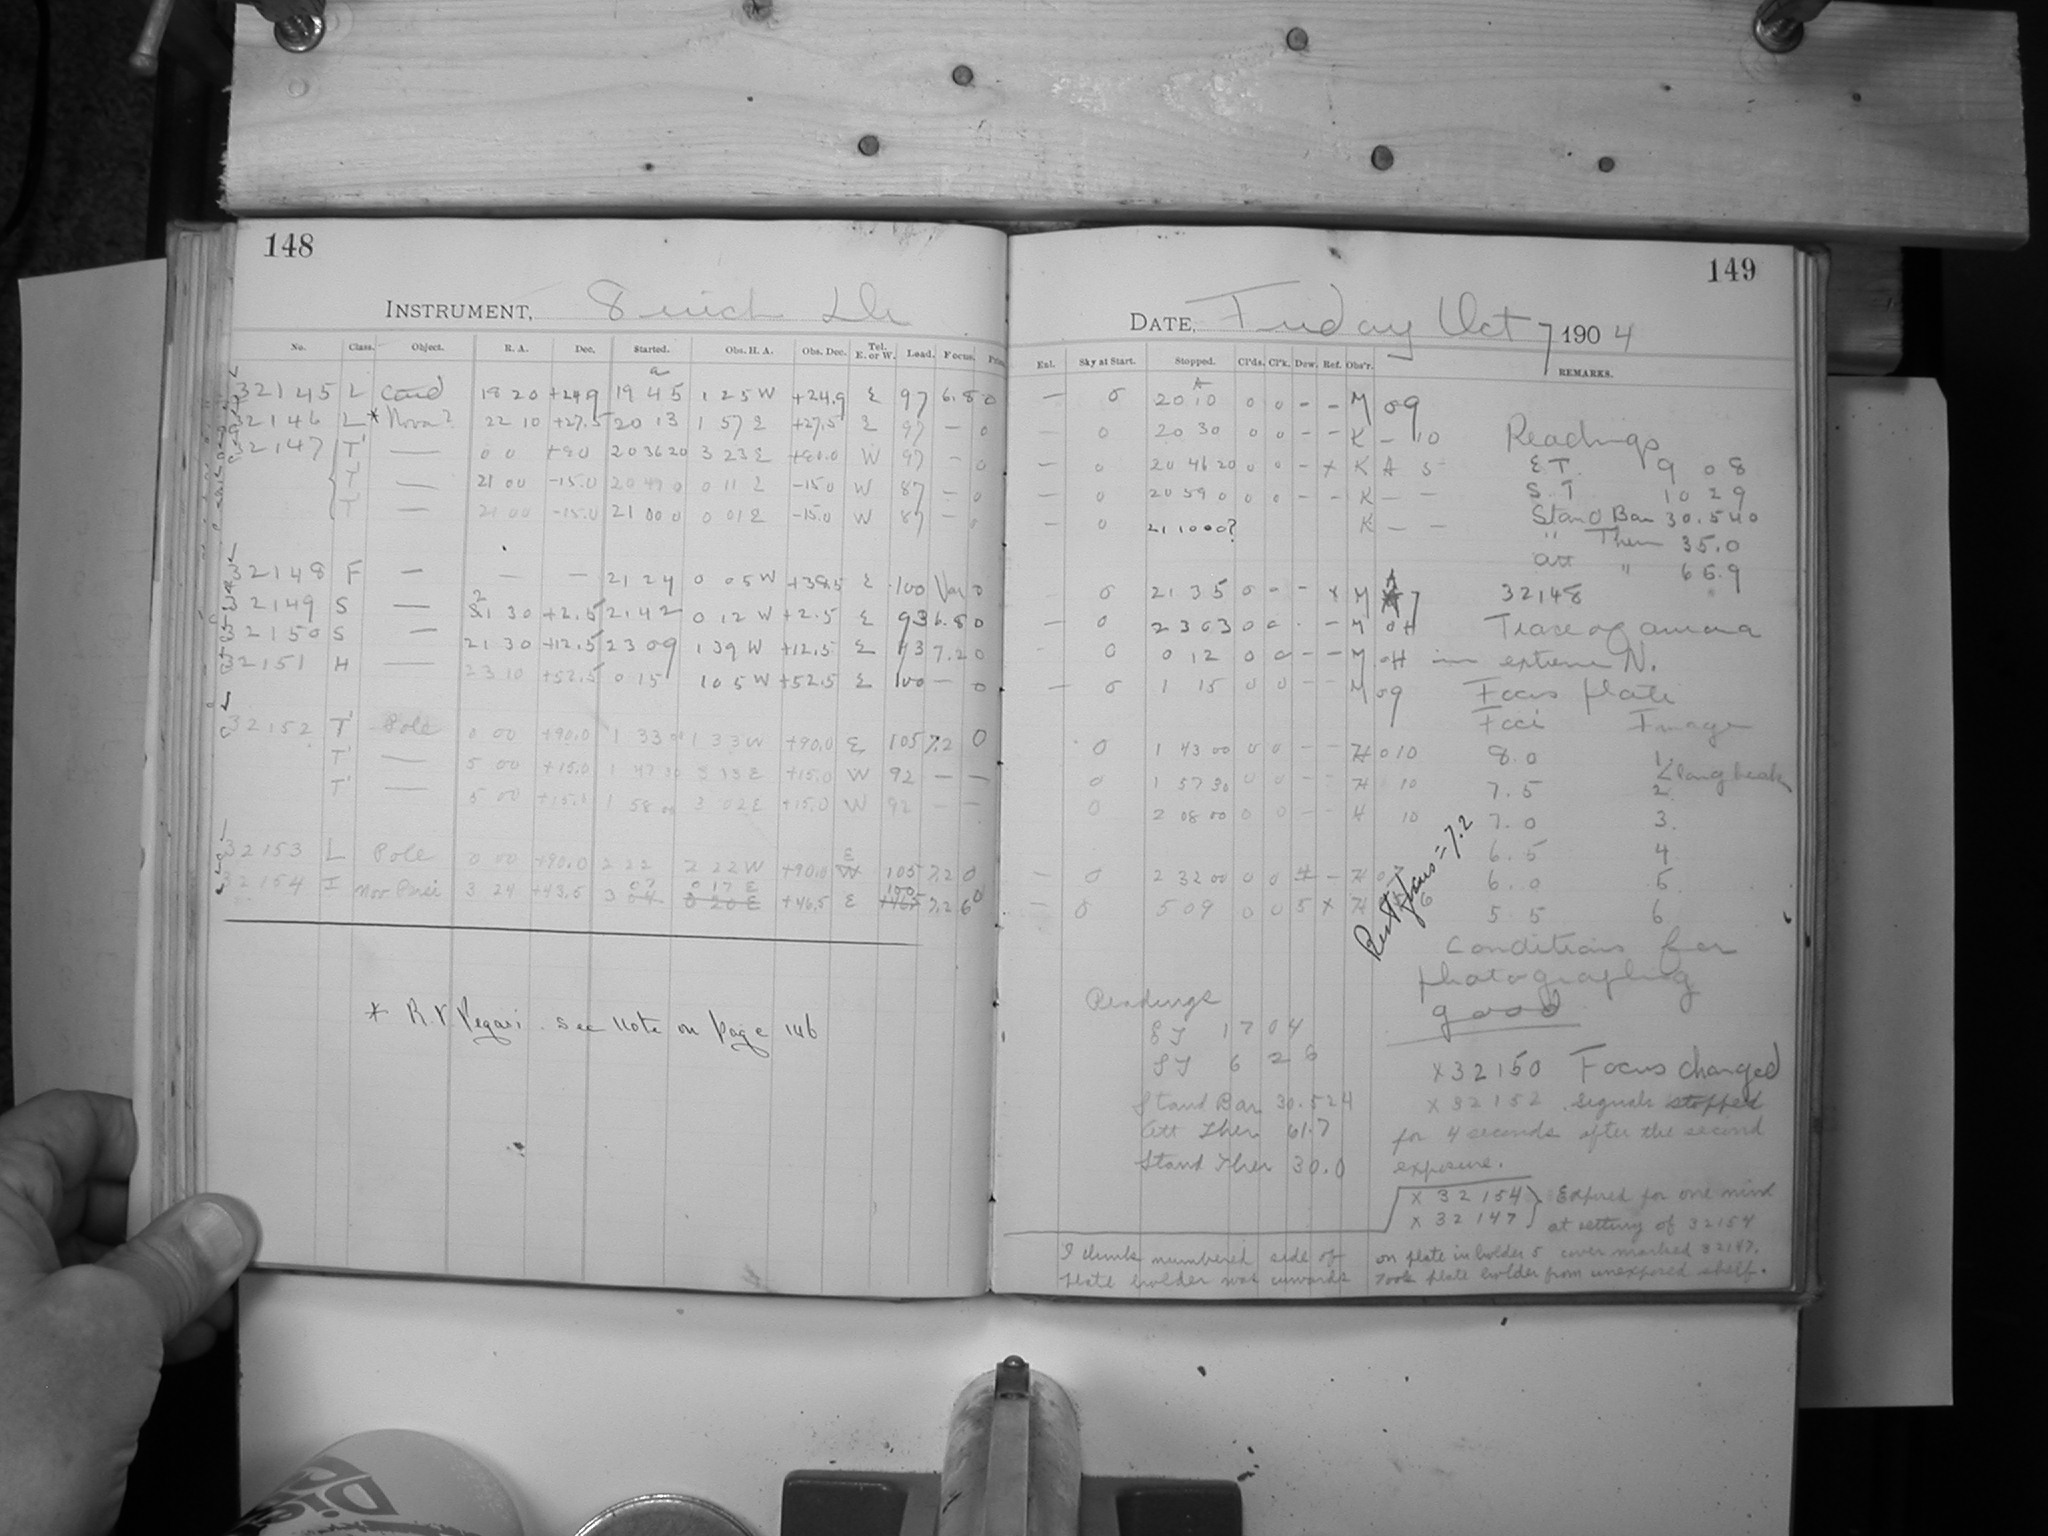 148
INSTRUMENT, 8 inch
No. Class. Object. R. A. Dec. Started. Obs. H. A. Obs. Dec. Tel. E. or W. Load. Focus.
32145 L Card 18 20 +24.9 19 45 1 25 W +24.9 E 97 6.8 0
32146 L * Nova? 22 10 +27.5 20 13 1 57 E +27.5 E 97 — 0
32147 T' — 0 0 +90 20 36 20 3 23 E +90.0 W 97 — 0
T' — 21 00 -15.0 20 49 0 0 11 E -15.0 W 87 — 0
T' — 21 00 -15.0 21 00 0 0 01 E -15.0 W 87 — 0
32148 F — — — 21 24 0 05 W +38.5 E 100 Var 0
32149 S — 21 30 +2.5 21 42 0 12 W +2.5 E 93 6.8 0
32150 S — 21 30 +12.5 23 09 1 39 W +12.5 E 93 7.2 0
32151 H — 23 10 +52.5 0 15 1 05 W +52.5 E 100 — 0
32152 T' Pole 0 00 +90.0 1 33 00 1 33 W +90.0 E 105 7.2 0
T' — 5 00 +15.0 1 47 30 3 13 E +15.0 W 92 — —
T' — 5 00 +15.0 1 58 00 3 02 E +15.0 W 92 — —
32153 L Pole 0 00 +90.0 2 22 2 22 W +90.0 E W 105 7.2 0
32154 I Nov Persei 3 24 +43.5 3 07 04 0 17 E 0 20 E +46.5 E 100 +46.5 7.2 6 0
* R.V. Pegasi. see note on page 146
149
DATE, Friday Oct 7 1904
Enl. Sky at Start. Stopped. Cl'ds. Cl'k. Dew. Ref. Obs'r. REMARKS.
— 0 20 10 0 0 - - M 09
— 0 20 30 0 0 - - K - 10
— 0 20 46 20 0 0 - x K A 5
— 0 20 59 0 0 0 - - K — —
— 0 21 10 00? K — —
0 21 35 0 - - x M A 7
— 0 23 03 0 0 - - M 0H
0 0 12 0 0 - - M 0H
— 0 1 15 0 0 - - M 09
0 1 43 00 0 0 - - H 0 10
0 1 57 30 0 0 - - H 10
0 2 08 00 0 0 - - H 10
— 0 2 32 00 0 0 - H
— 0 5 09 0 0 5 x H
Readings
E T. 9 08
S. T 10 29
Stand Bar 30.540
" Ther 35.0
Att " 66.9
32148
Trace of aurora
in extreme N.
Focus plate
Foci Image
8.0 1.
< long break
7.5 2
7.0 3.
6.5 4
6.0 5.
5.5 6.
Best focus = 7.2
Conditions for
photographing
good
Readings
E T 17 04
S T 6 28
Stand Bar 30.524
Att Ther 61.7
Stand Ther 30.0
x 32150 Focus changed
x 32152 Signals stopped
for 4 seconds after the second
exposure.
x 32154 } Expired for one mind
x 32147 } at setting of 32154
on plate in holder 5 cover marked 32147.
Took plate holder from unexposed shelf.
I think numbered side of
plate holder was inwards